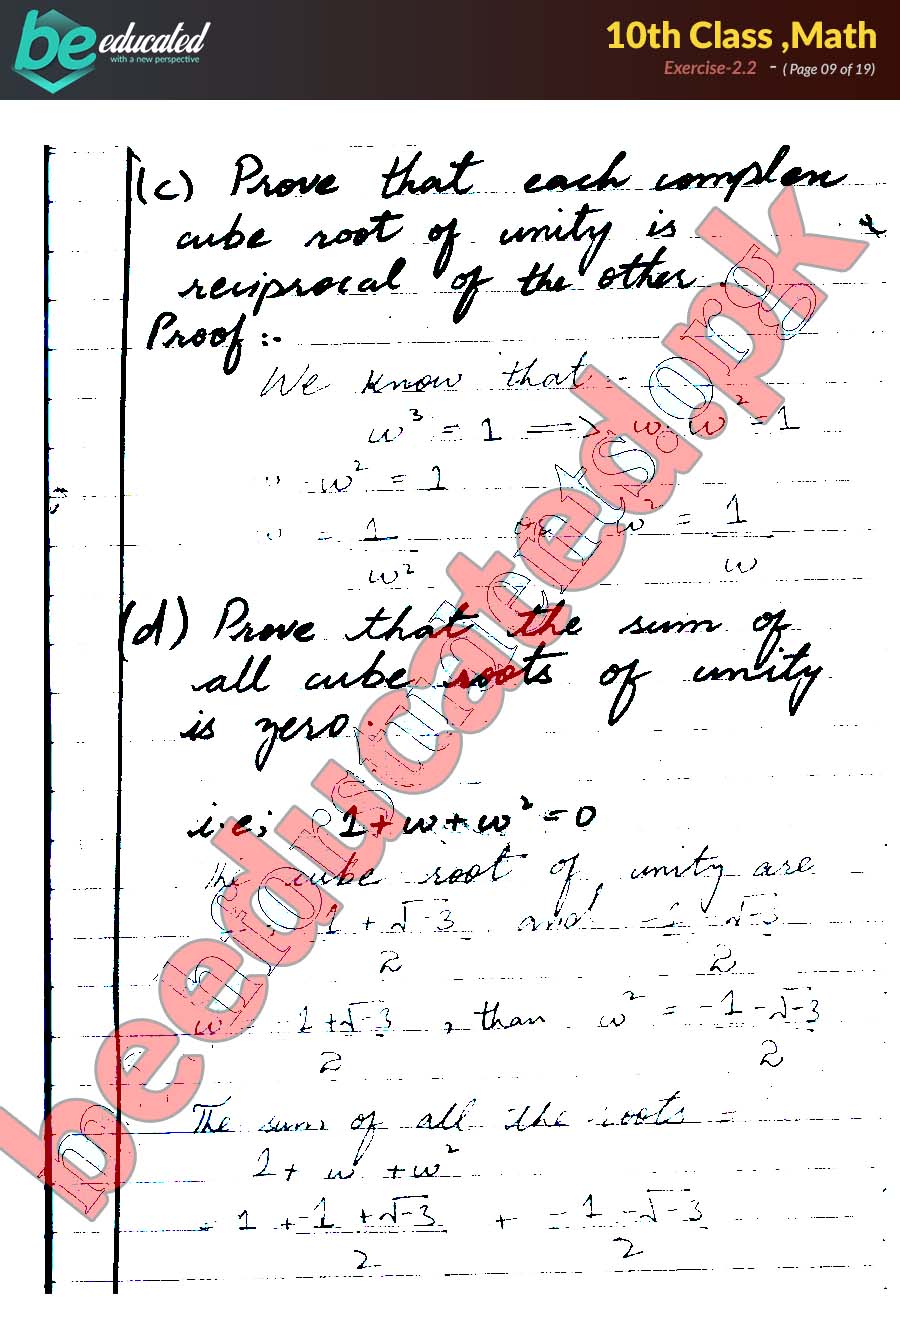 be educated
with a new perspective
10th Class ,Math
Exercise-2.2 - ( Page 09 of 19)
(c) Prove that each complex
cube root of unity is
reciprocal of the other.
Proof :-
We know that :-
w³ = 1 => w. w² = 1
w² = 1
= 1/w² or w² = 1/w
(d) Prove that the sum of
all cube roots of unity
is zero.
i.e; 1+w+w² = 0
The cube root of unity are
1+√-3/2 and -1-√-3/2
w = -1+√-3/2 , than w² = -1-√-3/2
The sum of all the roots =
1+ w +w²
= 1 + -1 +√-3/2 + -1 -√-3/2
beeducated.pk